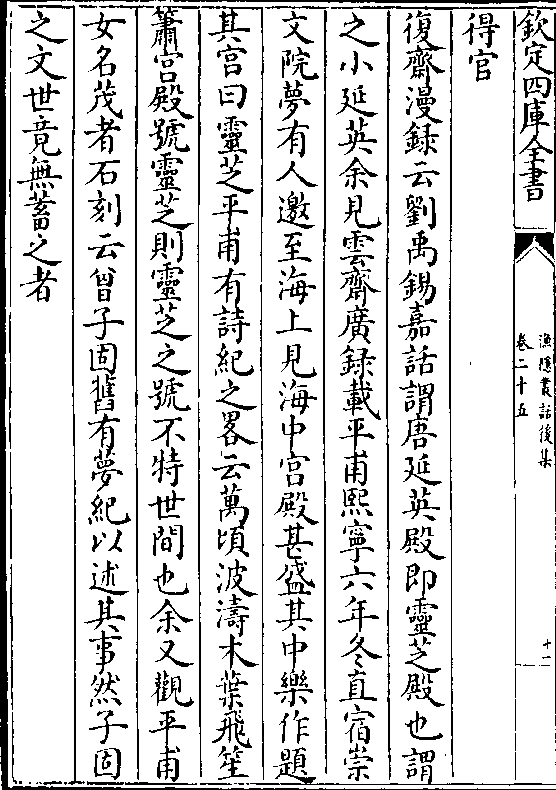 欽定四庫全書
漁隱叢話後集
卷二十五
十一
得官
復齋漫録云劉禹錫嘉話謂唐延英殿即靈芝殿也謂
之小延英余見雲齋廣録載平甫熙寧六年冬直宿崇
文院夢有人邀至海上見海中宮殿甚盛其中樂作題
其宮曰靈芝平甫有詩紀之畧云萬頃波濤木葉飛笙
簫宮殿號靈芝則靈芝之號不特世間也余又觀平甫
女名茂者石刻云曾子固舊有夢紀以述其事然子固
之文世竟無蓄之者